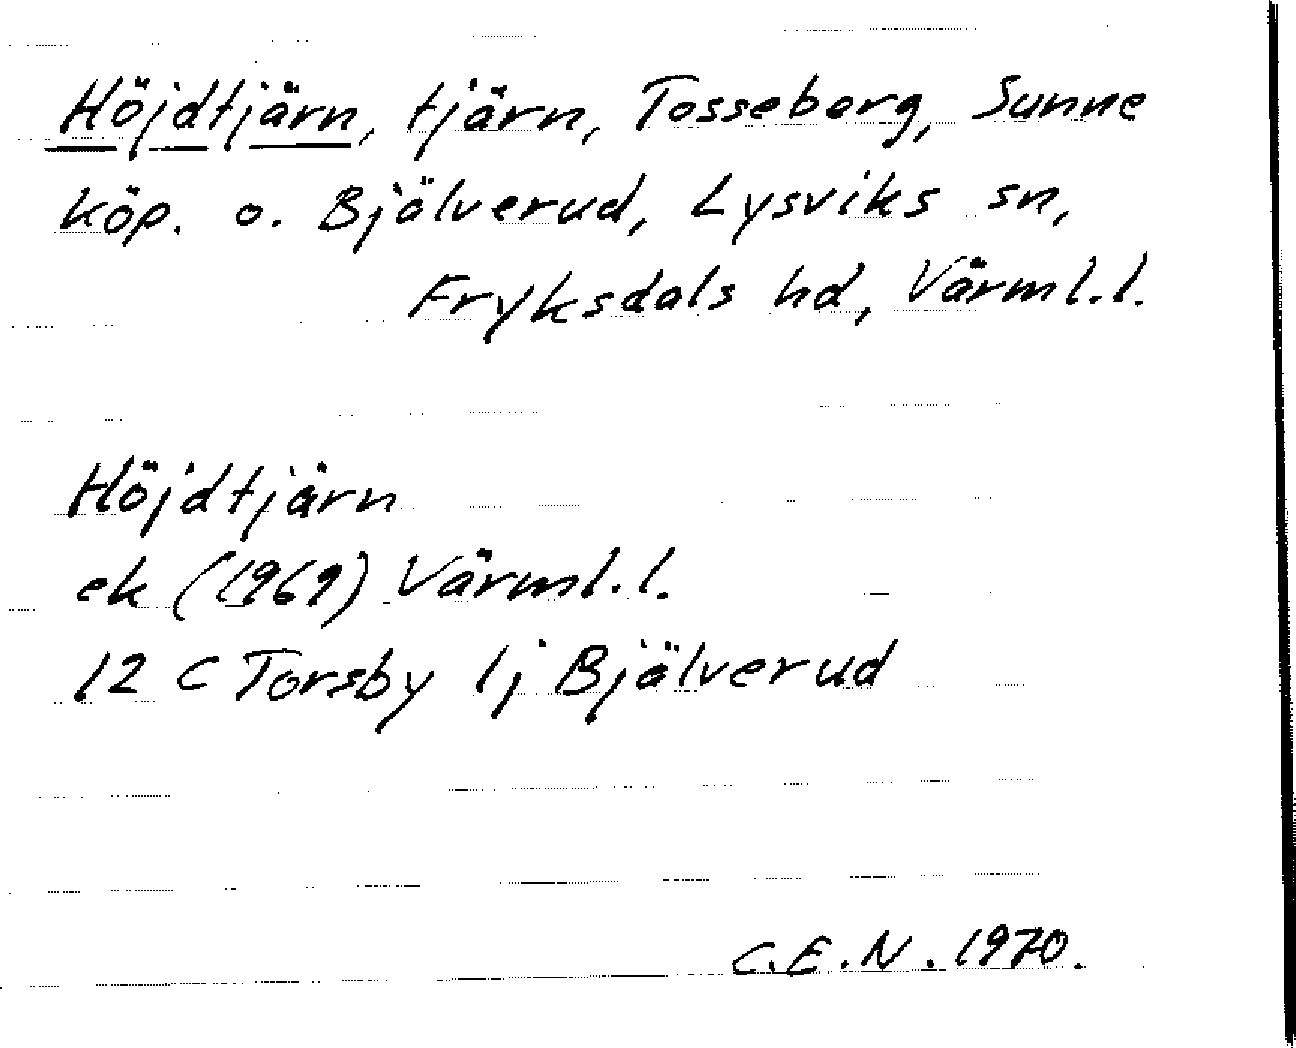 Höjdtjärn, tjärn, Tosseberg, Sunne
köp. o. Bjälverud, Lysviks sn,
Fryksdals hd, Värml.l.
Höjdtjärn
ek (1969) Värml.l.
12 C Torsby 1j Bjälverud
C.E.N. 1970.